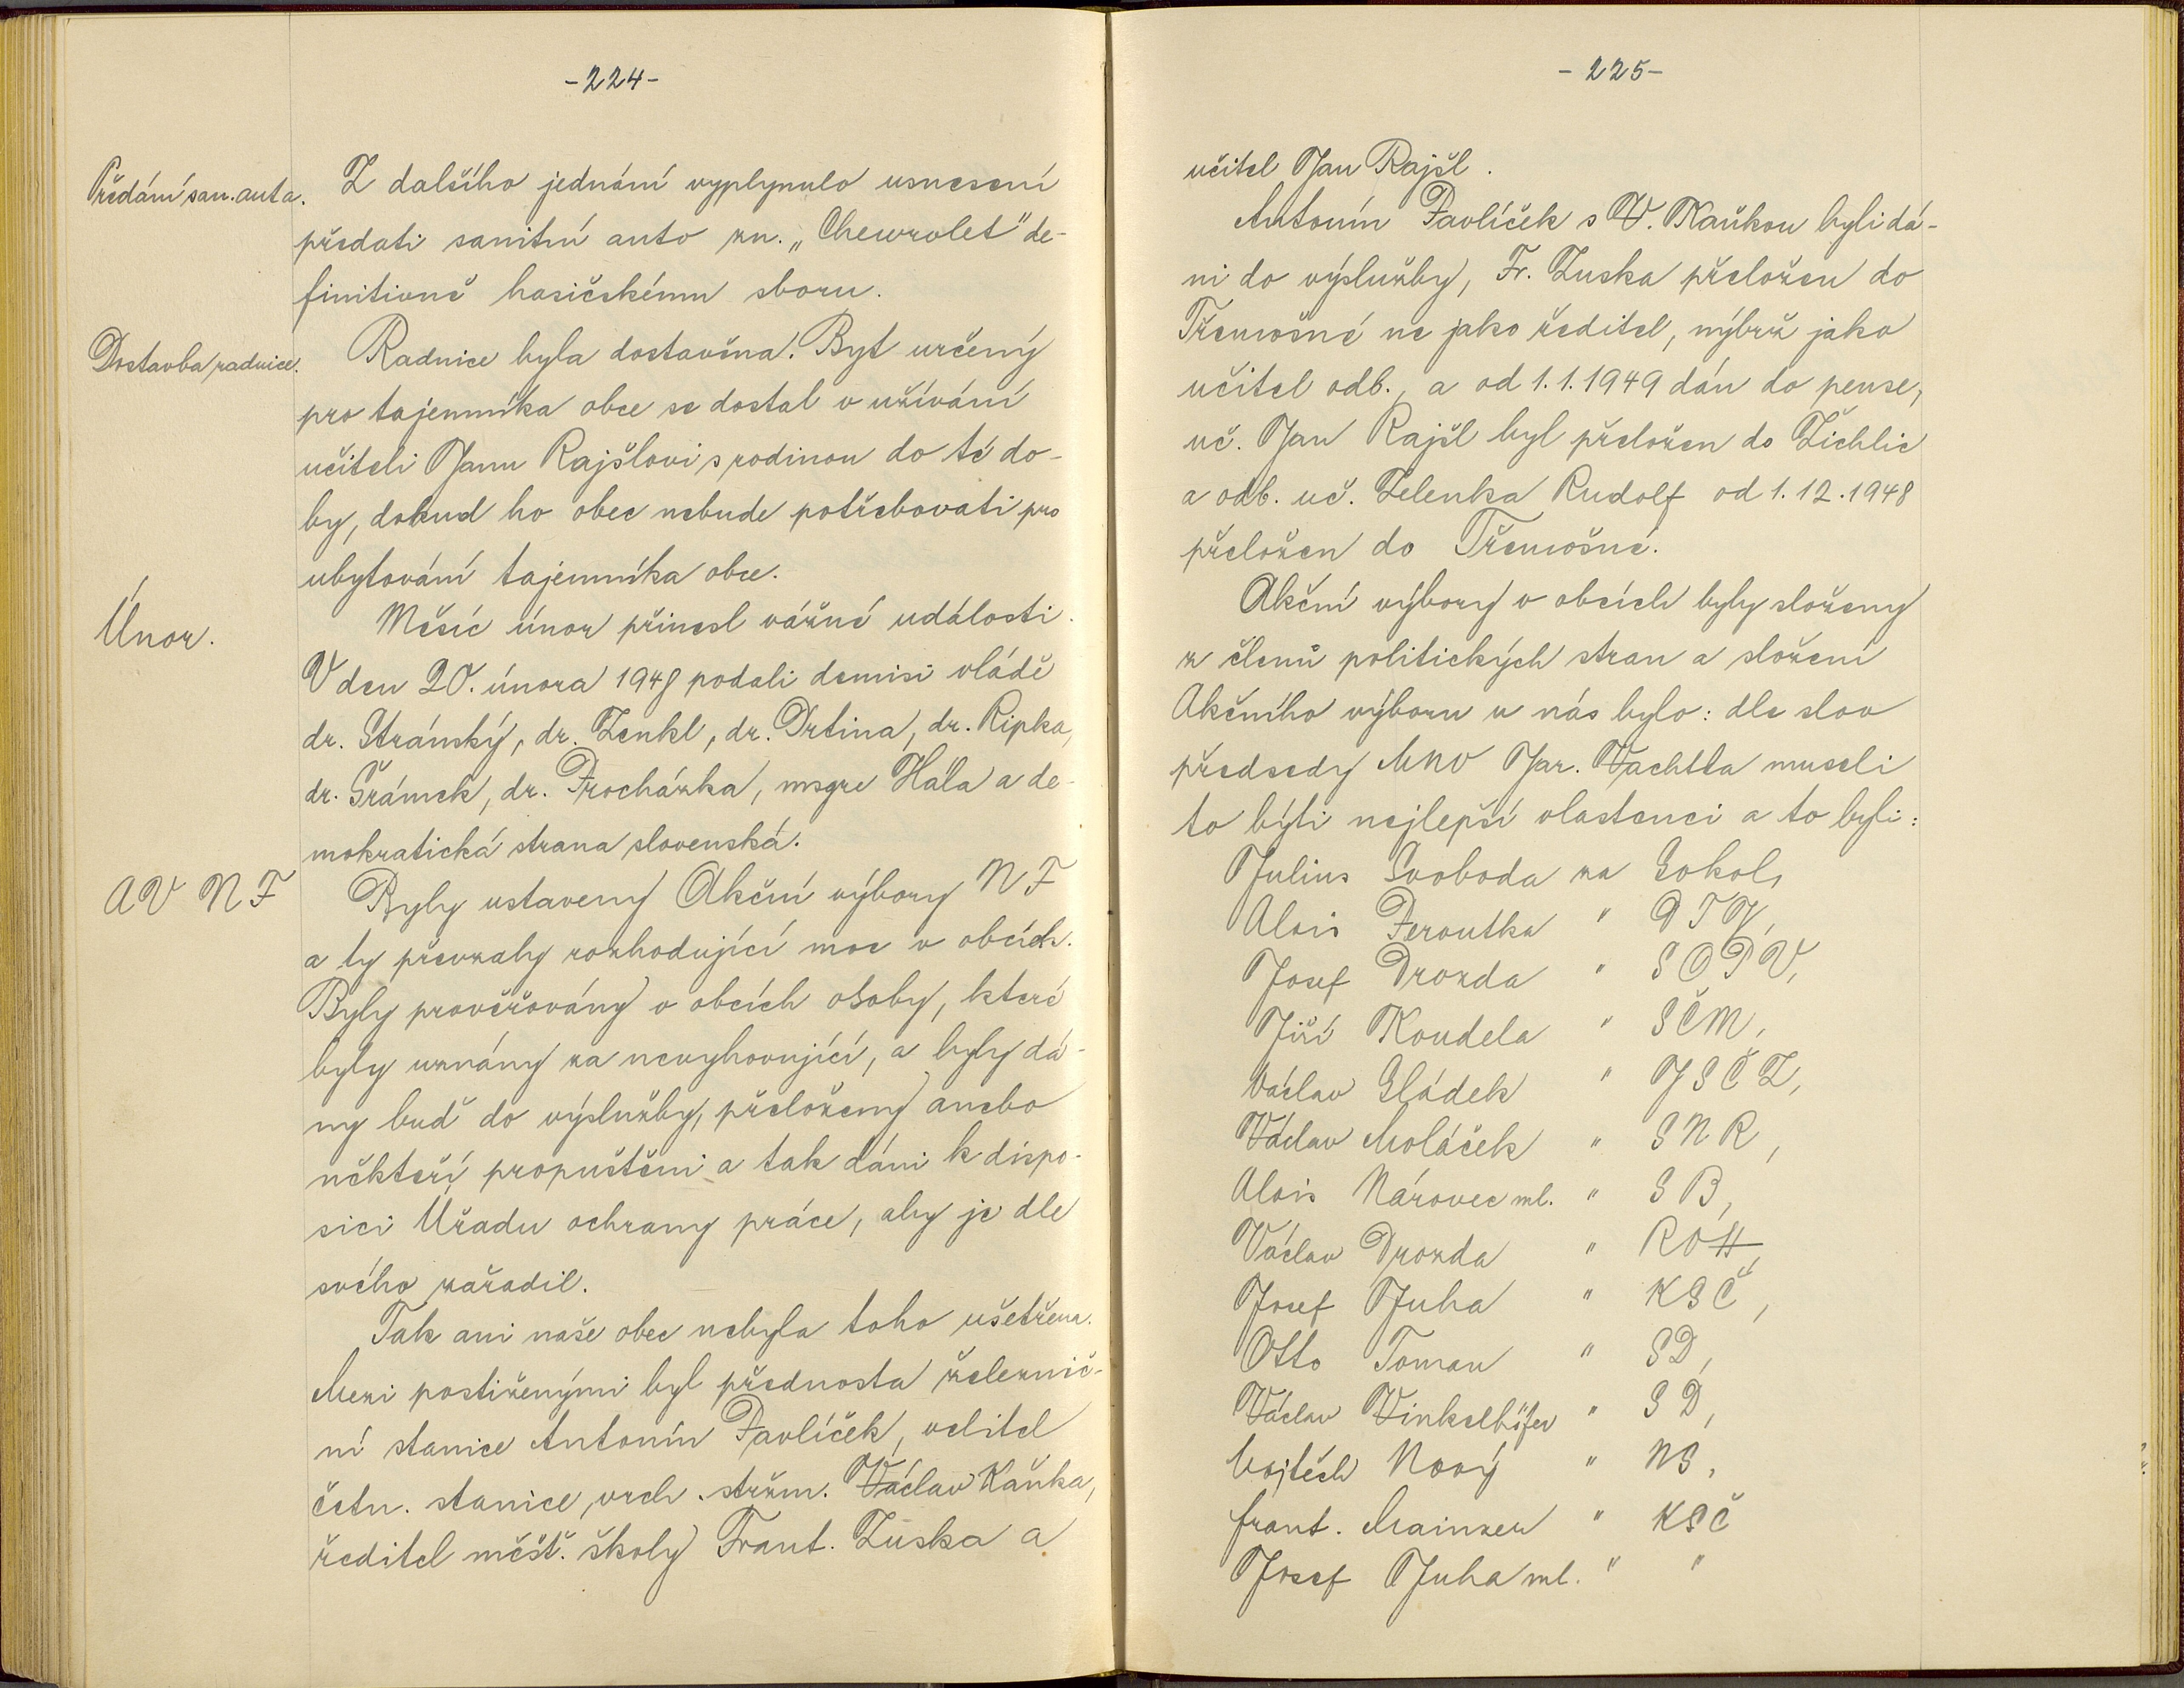 -224-
Předání san. auta.
Z dalšího jednání vyplynulo usnesení
předati sanitní auto zn. „Chewrolet" de-
finitivně hasičskému sboru.
Dostavba radnice.
Radnice byla dostavěna. Byt určený
pro tajemníka obce se dostal v užívání
učiteli Janu Rajšlovi s rodinou do té do-
by, dokud ho obec nebude potřebovati pro
ubytování tajemníka obce.
Únor.
Měsíc únor přinesl vážné události.
V den 20. února 1948 podali demisi vládě
dr. Stránský, dr. Zenkl, dr. Drtina, dr. Ripka,
dr. Šrámek, dr. Procházka, msgre Hála a de-
mokratická strana slovenská.
AV NF
Byly ustaveny Akční výbory NF
a ty převzaly rozhodující moc v obcích.
Byly prověřovány v obcích osoby, které
byly uznány za nevyhovující, a byly dá-
ny buď do výslužby, přeloženy anebo
někteří propuštěni a tak dáni k dispo-
sici Úřadu ochrany práce, aby je dle
svého zařadil.
Tak ani naše obec nebyla toho ušetřena.
Mezi postiženými byl přednosta želenznič-
ní stanice Antonín Pavlíček, velitel
četn. stanice, vrch. stržm. Václav Kaňka,
ředitel měšť. školy Frant. Zuska a
-225-
učitel Jan Rajšl.
Antonín Pavlíček s V. Kaňkou byli dá-
ni do výslužby, Fr. Zuska přeložen do
Třemošné ne jako ředitel, nýbrž jako
učitel odb., a od 1.1.1949 dán do pense,
uč. Jan Rajšl byl přeložen do Žichlic
a odb. uč. Zelenka Rudolf od 1.12.1948
přeložen do Třemošné.
Akční výbory v obcích byly složeny
z členů politických stran a složení
Akčního výboru u nás bylo: dle slov
předsedy MNV Jar. Wachtla museli
to býti nejlepší vlastenci a to byli:
Julius Svoboda za Sokol,
Alois Peroutka " DTJ,
Josef Drozda " SOPV,
Jiří Koudela " SČM,
Václav Sládek " JSČZ,
Václav Moláček " SNR,
Alois Nárovec ml. " SB,
Václav Drozda " ROH,
Josef Juha " KSČ,
Otto Toman " SD,
Václav Winkelhöfer " SD,
Vojtěch Nový " NS,
Frant. Mainzer " KSČ
Josef Juha ml. " "